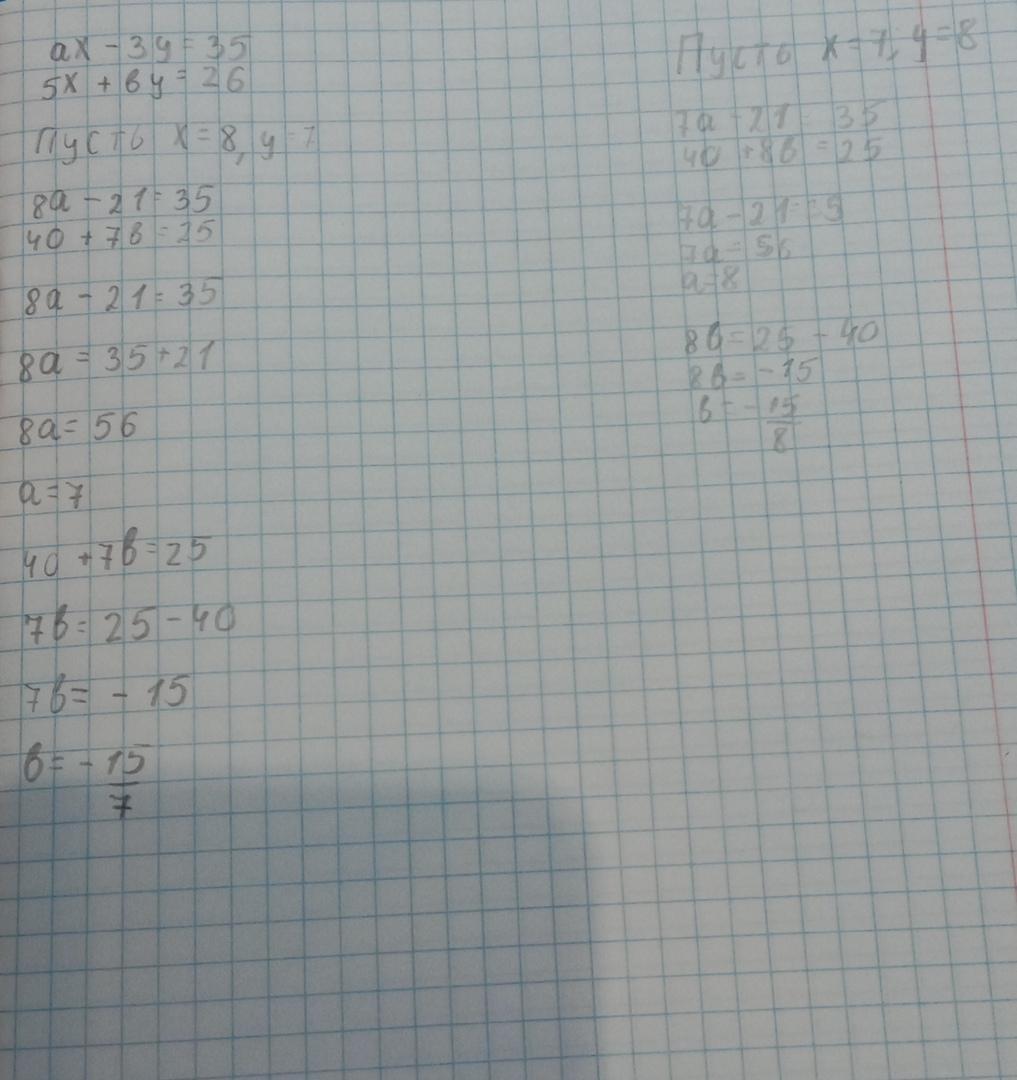 ax - 3y = 35
5x + вy = 26
Пусть x = 8, y = 7
8a - 21 = 35
40 + 7в = 25
8a - 21 = 35
8a = 35 + 21
8a = 56
a = 7
40 + 7в = 25
7в = 25 - 40
7в = - 15
в = - 15/7
Пусть x = 7, y = 8
7a - 21 = 35
40 + 8в = 25
7a - 21 = 5
7a = 56
a = 8
8в = 25 - 40
8в = - 15
в = - 15/8